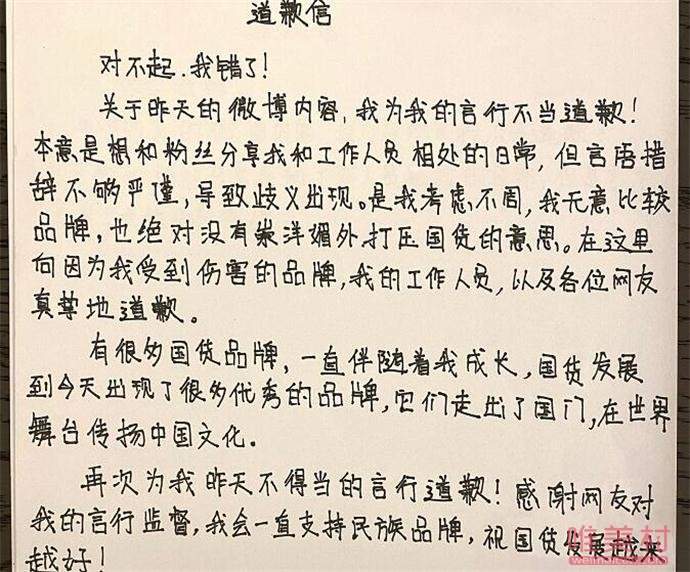 道歉信
对不起.我错了!
关于昨天的微博内容,我为我的言行不当道歉!
本意是想和粉丝分享我和工作人员相处的日常,但言语措
辞不够严谨,导致歧义出现。是我考虑不周,我无意比较
品牌,也绝对没有崇洋媚外,打压国货的意思。在这里
向因为我受到伤害的品牌,我的工作人员,以及各位网友
真挚地道歉。
有很多国货品牌,一直伴随着我成长,国货发展
到今天出现了很多优秀的品牌,它们走出了国门,在世界
舞台传扬中国文化。
再次为我昨天不得当的言行道歉!感谢网友对
我的言行监督,我会一直支持民族品牌,祝国货发展越来
越好!
唯美村